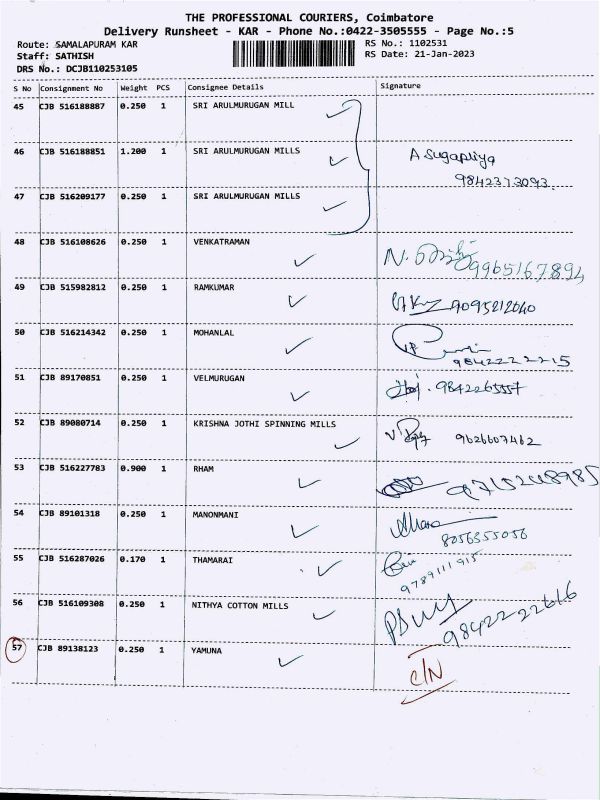 THE PROFESSIONAL COURIERS, Coimbatore
Delivery Runsheet - KAR - Phone No.:0422-3505555 - Page No.:5
Route: SAMALAPURAM KAR
RS No.: 1102531
Staff: SATHISH
RS Date: 21-Jan-2023
DRS No.: DCJB110253105
S No Consignment No Weight PCS Consignee Details Signature
45 CJB 516188887 0.250 1 SRI ARULMURUGAN MILL
46 CJB 516188851 1.200 1 SRI ARULMURUGAN MILLS A Sugapriya
9842373093
47 CJB 516209177 0.250 1 SRI ARULMURUGAN MILLS
48 CJB 516108626 0.250 1 VENKATRAMAN N. 9965167894
49 CJB 515982812 0.250 1 RAMKUMAR 9095212040
50 CJB 516214342 0.250 1 MOHANLAL
9842222215
51 CJB 89170851 0.250 1 VELMURUGAN 9842265557
52 CJB 89080714 0.250 1 KRISHNA JOTHI SPINNING MILLS 9626607462
53 CJB 516227783 0.900 1 RHAM
54 CJB 89101318 0.250 1 MANONMANI
8056355056
55 CJB 516287026 0.170 1 THAMARAI
9789111915
56 CJB 516109308 0.250 1 NITHYA COTTON MILLS
9842222616
57 CJB 89138123 0.250 1 YAMUNA C/N